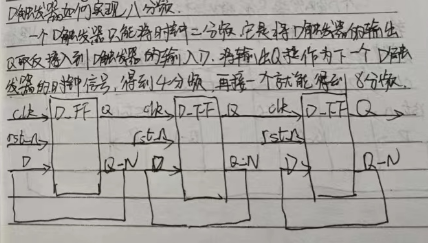 D触发器如何实现八分频.
一个D触发器只能将时钟二分频,它是将D触发器的输出
Q取反接入到D触发器的输入D.将输出Q接作为下一个D触发
器的时钟信号,得到4分频,再接一个就能得到8分频.
clk D-FF Q clk D-FF Q clk D-FF Q
rst_n rst_n rst_n
D Q-N D Q-N D Q-N